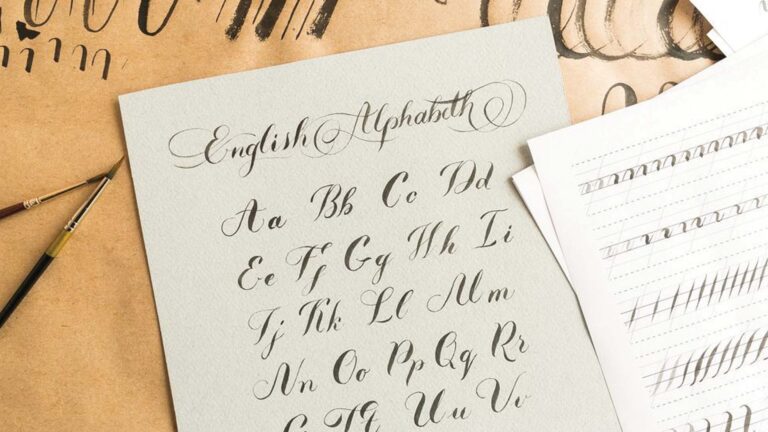 English Alphabeth
Aa Bb Cc Dd
Ee Ff Gg Hh Ii
Jj Kk Ll Mm
Nn Oo Pp Qq Rr
Uu Vv